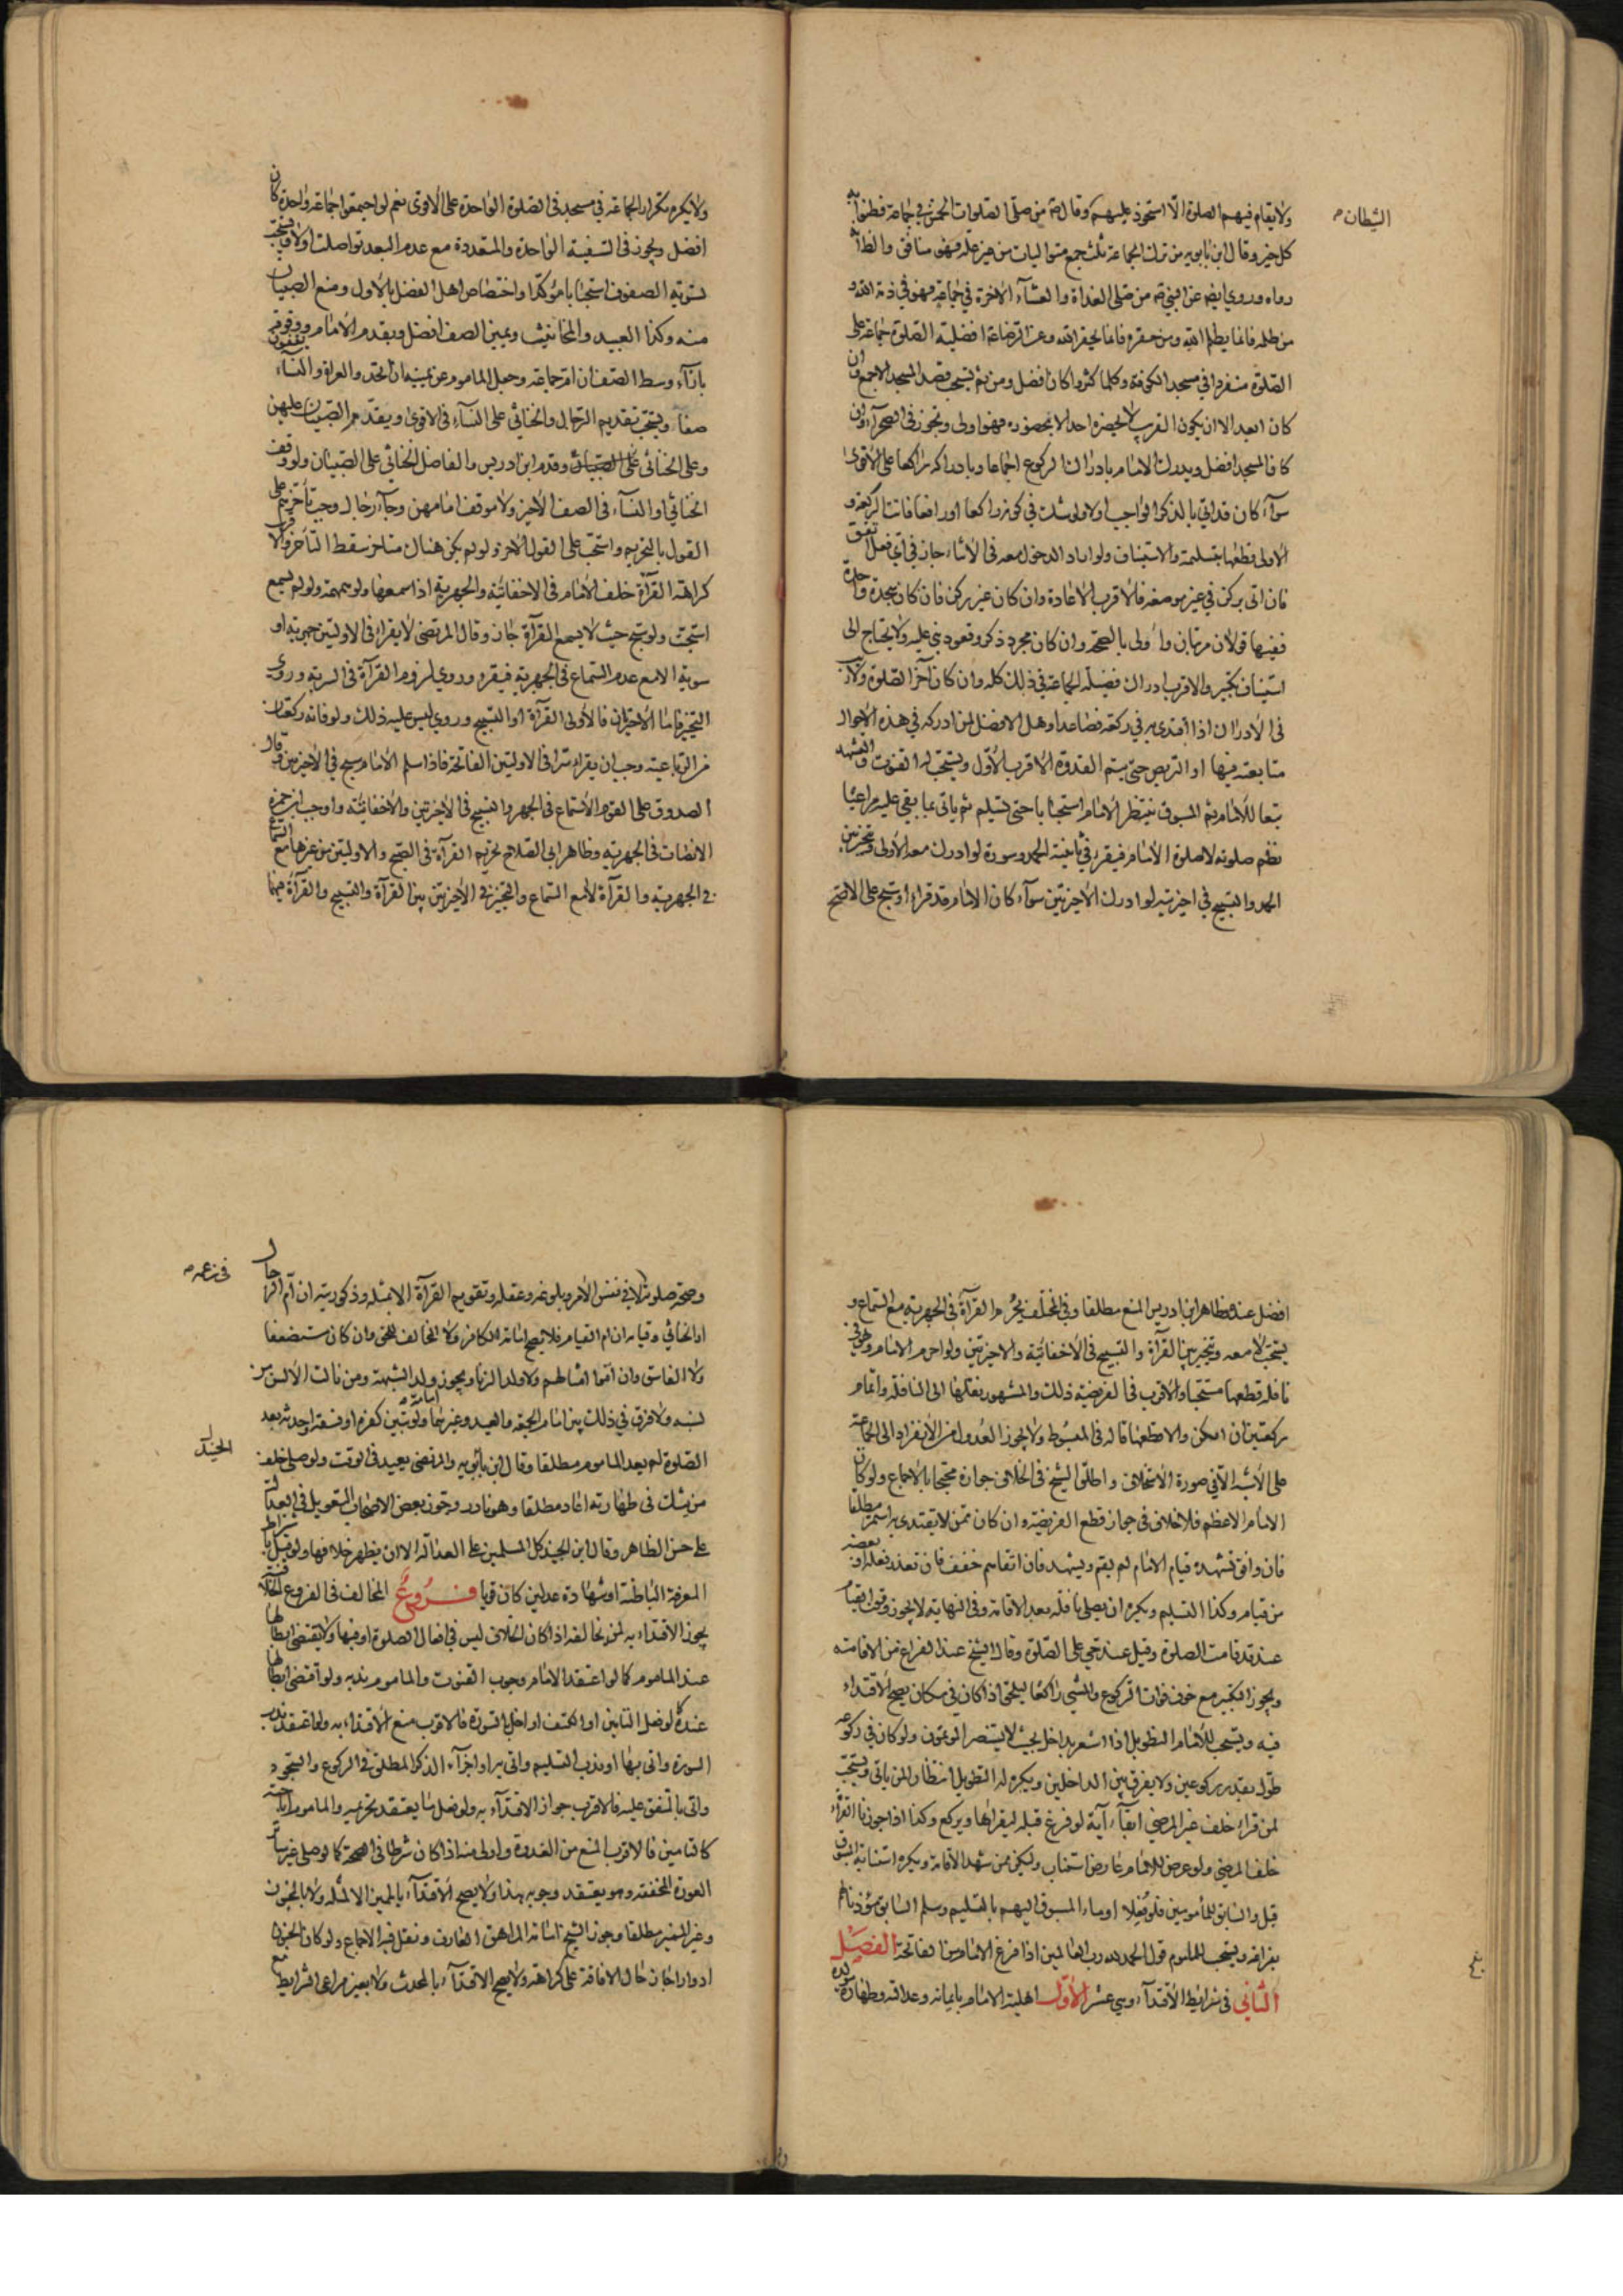 ولا يقام فيهم الصلوة الّا استحوذ عليهم وقال ص من صلّى الصلوات الخمس في جماعة فظنوا به
الشيطان
كل خير وقال ابن بابويه من ترك الجماعة ثلث جمع متواليات من غير علة فهو منافق والظ انه
رواه وروي ايضا عن النبي ص من صلى الغداة والعشاء الاخرة في جماعة فهو في ذمة الله و
من ظلمه فانما يظلم الله ومن حقره فانما يحقر الله وعن الرضا ع افضلية الصلوة جماعة على
الصلوة منفردا في مسجد الكوفة وكلما كثروا كان افضل ومن ثم يستحب قصد المسجد الاجمع وان
كان ابعد الا ان يكون القرب لا يحضره احد الا بحضوره فهو اولى وتجوز في الصحراء وان
كان المسجد افضل ويدرك الامام بادراك الركوع اجماعا وبادراكه راكعا على الاقوى
سواء كان قد اتى بالذكر الواجب اولا ولو شك في كونه راكعا او رافعا فاتت الركعة و
الاولى قطعها بتسليمة والاستيناف ولو اراد الدخول معه في الاثناء جاز في اي فعل اتفق
فان اتى بركن في غير موضعه فالاقرب الاعادة وان كان غير ركن فان كان سجدة واحدة
ففيها قولان مرتبان واولى بالصحة وان كان مجرد ذكر وقعود بنى عليه ولا يحتاج الى
استيناف تكبير والاقرب ادراك فضيلة الجماعة في ذلك كله وان كان آخر الصلوة ولا ريب
في الادراك اذا اقتدى به في ركعة فصاعدا وهل الافضل لمن ادركه في هذه الاحوال
متابعته فيها او التربص حتى يتم القدوة الاقرب الاول ويستحب له القنوت والتشهد
تبعا للامام ثم المسبوق ينتظر الامام استحبابا حتى يسلم ثم ياتي بما بقي عليه مراعيا
نظم صلوته لا صلوة الامام فيقرء في ثانيته الحمد وسورة لو ادرك معه الاولى وتخير بين
الحمد والتسبيح في اخيرتيه لو ادرك الاخيرتين سواء كان الامام قد قراء او سبح على الاصح
ولا يكره تكرار الجماعة في مسجد في الصلوة الواحدة على الاقوى نعم لو اجتمعوا جماعة واحدة كان
افضل ويجوز في السفينة الواحدة والمتعددة مع عدم البعد تواصلت اولا ويستحب
تسوية الصفوف استحبابا مؤكدا واختصاص اهل الفضل بالاول ومنع الصبيان
منه وكذا العبيد والمخانيث ويمين الصف افضل ويقدم الامام ووقوفه
بازاء وسط الصف ان ام جماعة وجعل الماموم عن يمينه ان اتحد والعراة والنساء يقفون
صفا ويستحب تقديم الرجال والخناثي على النساء في الاقوى ويقدم الصبيان عليهن
وعلى الخناثى على الصبيان وقدم ابن ادريس والفاضل الخناثي على الصبيان ولو وقف
الخناثي او النساء في الصف الاخير ولا موقف امامهن وجاء رجال وجب تأخرهم على
القول بالتحريم واستحب على القول الاخر ولو لم يكن هناك متاخر سقط التأخر والاقرب
كراهة القرآة خلف الامام في الاخفاتية والجهرية اذا سمعها ولو همهمة ولو لم يسمع
استحبت ولو سبح حيث لا يسمع القرآة جاز وقال المرتضى لا يقراء في الاوليتين جهرية او
سرية الا مع عدم السماع في الجهرية فيقرء وروي لزوم القرآة في السرية وروي
التخيير فاما الاخيرتان فالاولى القرآة او التسبيح وروي ليس عليه ذلك ولو فاته ركعتان
من الرباعية وجب ان يقراء سرا في الاوليتين الفاتحة فاذا سلم الامام سبح في الاخيرتين وقال
الصدوق على القوم الاستماع في الجهر والتسبيح في الاخيرتين والاخفاتية واوجب ابن حمزة
الانصات في الجهرية وظاهر ابي الصلاح تحريم القرآة في الصبح والاوليتين من غيرها مع السماع
في الجهرية والقرآة لا مع السماع والتخيير في الاخيرتين بين القرآة والتسبيح والقرآة فيهما
افضل عنده وظاهر ابن ادريس المنع مطلقا وفي المختلف تحرم القرآة في الجهرية مع السماع و
يستحب لا معه وتخير بين القرآة والتسبيح في الاخفاتية والاخيرتين ولو احرم الامام وهو في
نافلة قطعها مستحبا والاقرب في الفريضة ذلك والمشهور نقلها الى النافلة واتمام
ركعتين ان امكن والا قطعها قاله في المبسوط ولا يجوز العدول من الانفراد الى الجماعة
على الاشبه الا في صورة الاستخلاف واطلق الشيخ في الخلاف جوازه محتجا بالاجماع ولو كان
الامام الاعظم فلا خلاف في جواز قطع الفريضة وان كان ممن لا يقتدى به استمر مطلقا
فان وافق تشهده قيام الامام لم يقم ويتشهد فان اتقاهم خفف فان تعذر فعله او بعضه
من قيام وكذا التسليم ويكره ان يصلى نافلة بعد الاقامة وفي النهاية لا يجوز ووقت القيام
عند قد قامت الصلوة وقيل عند حي على الصلوة وقال الشيخ عند الفراغ من الاقامة
ويجوز التكبير مع خوف فوات الركوع والمشي راكعا ليلحق اذا كان في مكان يصح الاقتداء
فيه ويستحب للامام التطويل اذا استشعر بداخل بحيث لا يستضر المؤتمون ولو كان في ركوعه
طول بقدر ركوعين ولا يفرق بين الداخلين ويكره له التطويل انتظارا لمن ياتي ويستحب
لمن قراء خلف غير المرضي ابقاء آية لو فرغ قبله ليقرأها ويركع وكذا اذا جوزنا القرآة
خلف المرضي ولو عرض للامام عارض استناب وليكن ممن شهد الاقامة ويكره استنابة المسبوق
قيل والسابق للمأمومين فلو فعلا اومأ المسبوق اليهم بالتسليم وسلم السابق مؤذنا لهم
بفراغه ويستحب للماموم قول الحمد لله رب العالمين اذا فرغ الامام من الفاتحة الفصل
الثاني في شرايط الاقتداء وهي عشر الاول اهلية الامام بايمانه وعدالته وطهارة مولده
بلغ
وصحة صلوته لا في نفس الامر وبلوغه وعقله وتقويم القرآة الا بمثله وذكوريته ان ام الرجال
في زعمه
او الخناثي وقيامه ان ام القيام فلا يصح امامة الكافر ولا المخالف للحق وان كان مستضعفا
ولا الفاسق وان أموا امثالهم ولا ولد الزنا ويجوز ولد الشبهة ومن نالت الالسن من
نسبه ولا فرق في ذلك بين امام الجمعة والعيد وغيرهما ولو تبين كفره او فسقه او حدثه بعد
الصلوة لم يعد الماموم مطلقا وقال ابن بابويه والمرتضى يعيد في الوقت ولو صلى خلف
الجنيد
من يشك في طهارته اعاد مطلقا وهو نادر وجوز بعض الاصحاب التعويل في العدالة
على حسن الظاهر وقال ابن الجنيد كل المسلمين على العدالة الا ان يظهر خلافها ولو قيل باشتراط
المعرفة الباطنة او شهادة عدلين كان قويا فروع المخالف في الفروع الخلافية
يجوز الاقتداء به لمن خالفه اذا كان الخلاف ليس في افعال الصلوة او فيها ولا يقتضي ابطالها
عند الماموم كما لو اعتقد الامام وجوب القنوت والماموم ندبه ولو اقتضى ابطالها
عنده كما لو فعل التامين او الكتف او اخل بالسورة فالاقرب منع الاقتداء به ولو اعتقد ندب
السورة واتى بها او ندب التسليم واتى به او اجزاء الذكر المطلق في الركوع والسجود
واتى بالمتفق عليه فالاقرب جواز الاقتداء به ولو فعل ما يعتقد تحريمه والماموم اباحته
كالتامين فالاقرب المنع من القدوة واولى منه اذا كان شرطا في الصحة كما لو صلى غير ساتر
العورة المخففة وهو يعتقد وجوبه هذا ولا يصح الاقتداء بالمجنون الا لمثله ولا بالمجنون
وغير المميز مطلقا وجوز الشيخ امامة المراهق العارف ونقل فيه الاجماع ولو كان المجنون
ادوارا جاز حال الافاقة على كراهة ولا يصح الاقتداء بالمحدث ولا بغير مراعى الشرايط مع